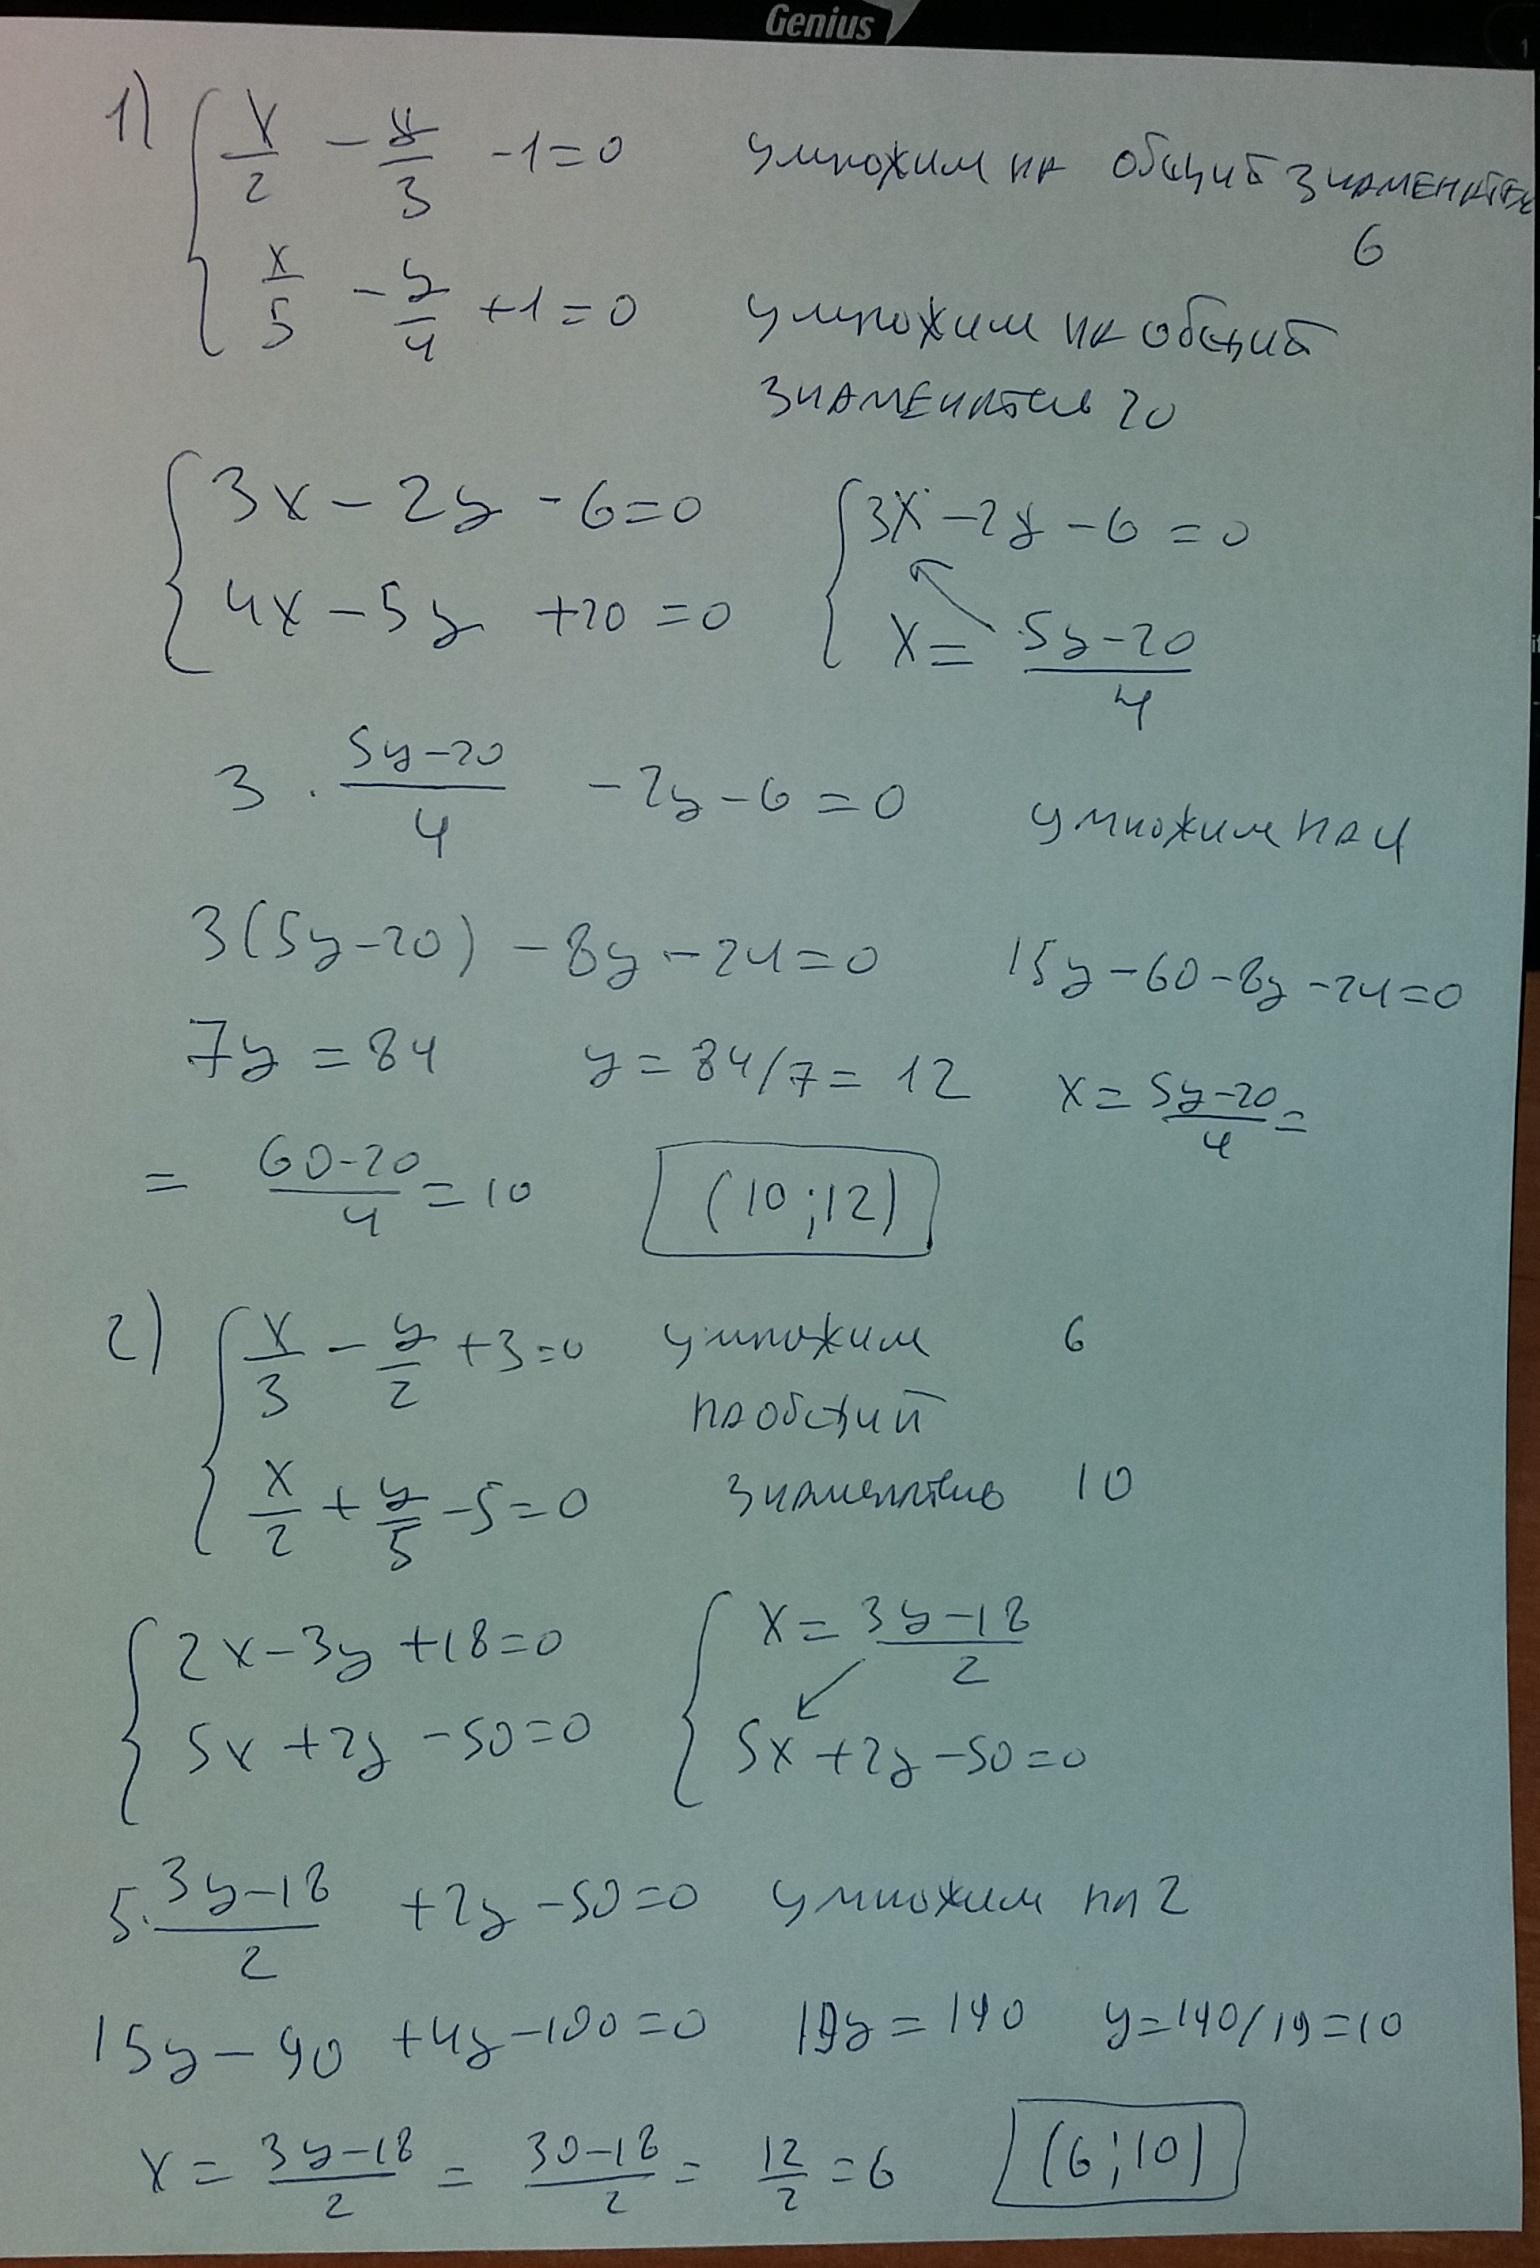 Genius
1) { x/2 - y/3 - 1 = 0 умножим на общий знаменатель
6
x/5 - y/4 + 1 = 0 умножим на общий
знаменатель 20
{ 3x - 2y - 6 = 0 { 3x - 2y - 6 = 0
4x - 5y + 20 = 0 x = (5y-20)/4
3 · (5y-20)/4 - 2y - 6 = 0 умножим на 4
3(5y-20) - 8y - 24 = 0 15y - 60 - 8y - 24 = 0
7y = 84 y = 84/7 = 12 x = (5y-20)/4 =
= (60-20)/4 = 10 (10;12)
2) { x/3 - y/2 + 3 = 0 умножим 6
на общий
x/2 + y/5 - 5 = 0 знаменатель 10
{ 2x - 3y + 18 = 0 { x = (3y-18)/2
5x + 2y - 50 = 0 5x + 2y - 50 = 0
5 · (3y-18)/2 + 2y - 50 = 0 умножим на 2
15y - 90 + 4y - 100 = 0 19y = 190 y = 190/19 = 10
x = (3y-18)/2 = (30-18)/2 = 12/2 = 6 (6;10)